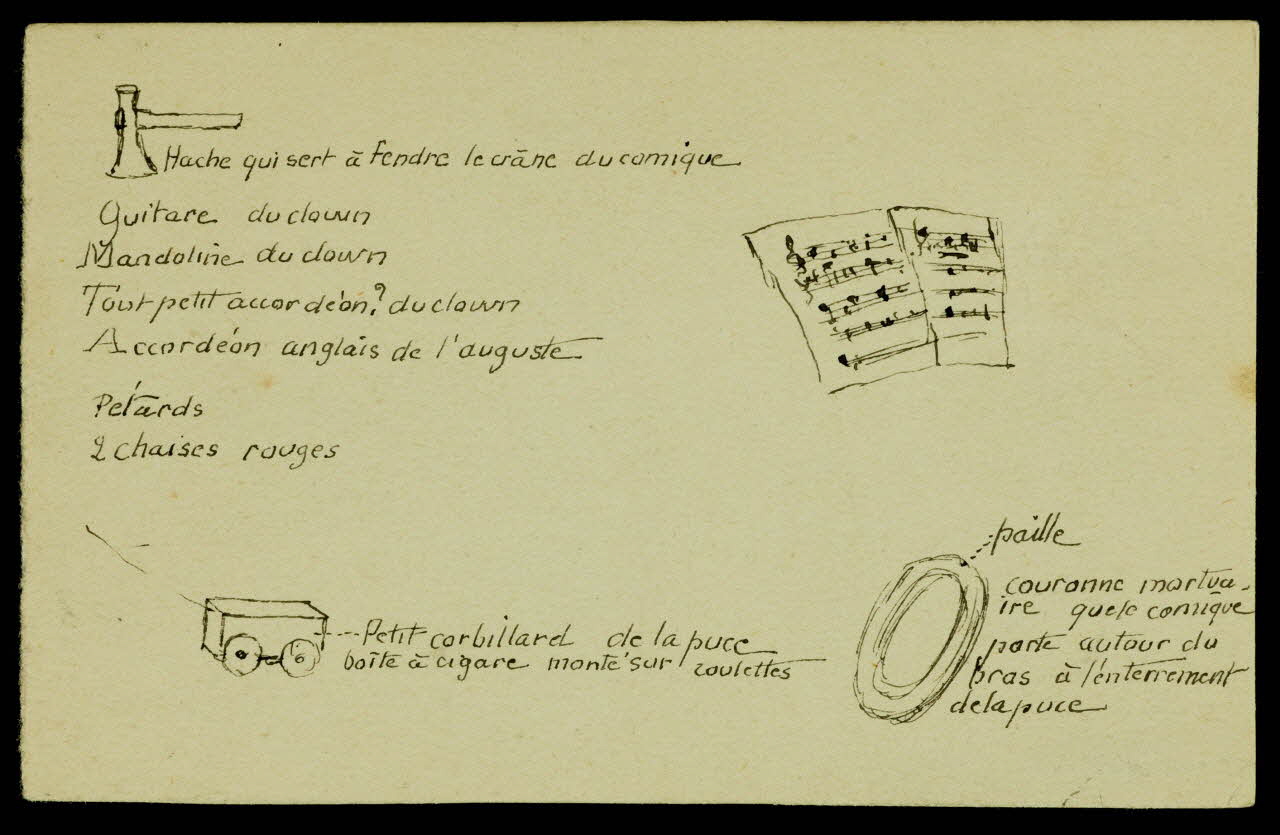 Hache qui sert à fendre le crâne du comique
Guitare du clown
Mandoline du clown
Tout petit accordéon? du clown
Accordéon anglais de l'auguste
Pétards
2 chaises rouges
paille
couronne mortua-
ire que le comique
porte autour du
bras à l'enterrement
de la puce
Petit corbillard de la puce
boîte à cigare monté sur roulettes